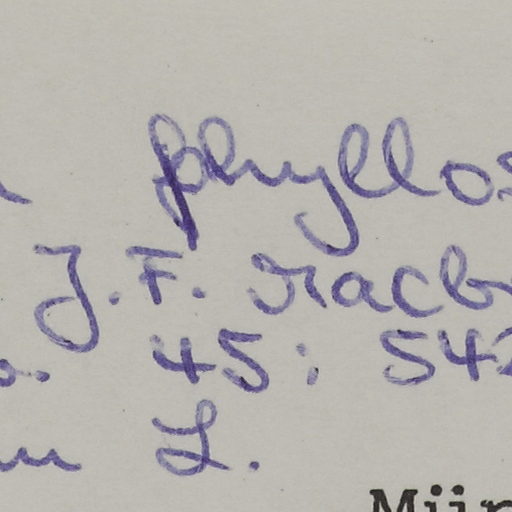 phyllos
J.F. Macbr
o. 45: 542
um L.
Mün